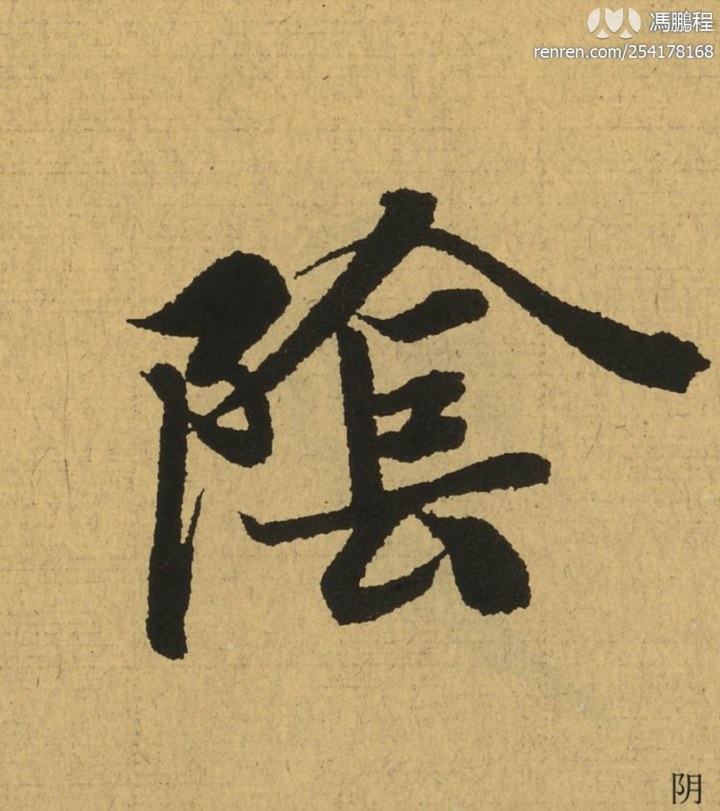 馮鵬程
renren.com/254178168
陰
阴